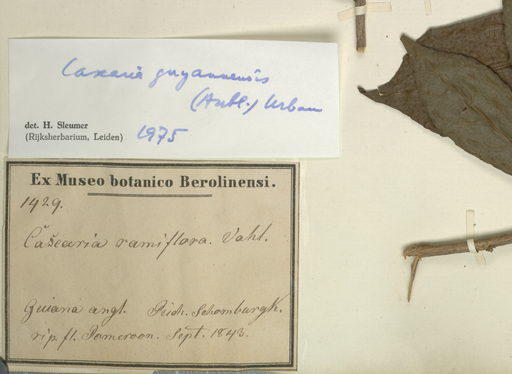 Casearia guyannensis
(Aubl.) Urban
det. H. Sleumer
(Rijksherbarium, Leiden) 1975
Ex Museo botanico Berolinensi.
1429.
Căsearia ramiflora. Vahl.
Guiana angl. Rich. Schomburgk.
rip. fl. Pomeroon. Sept. 1843.